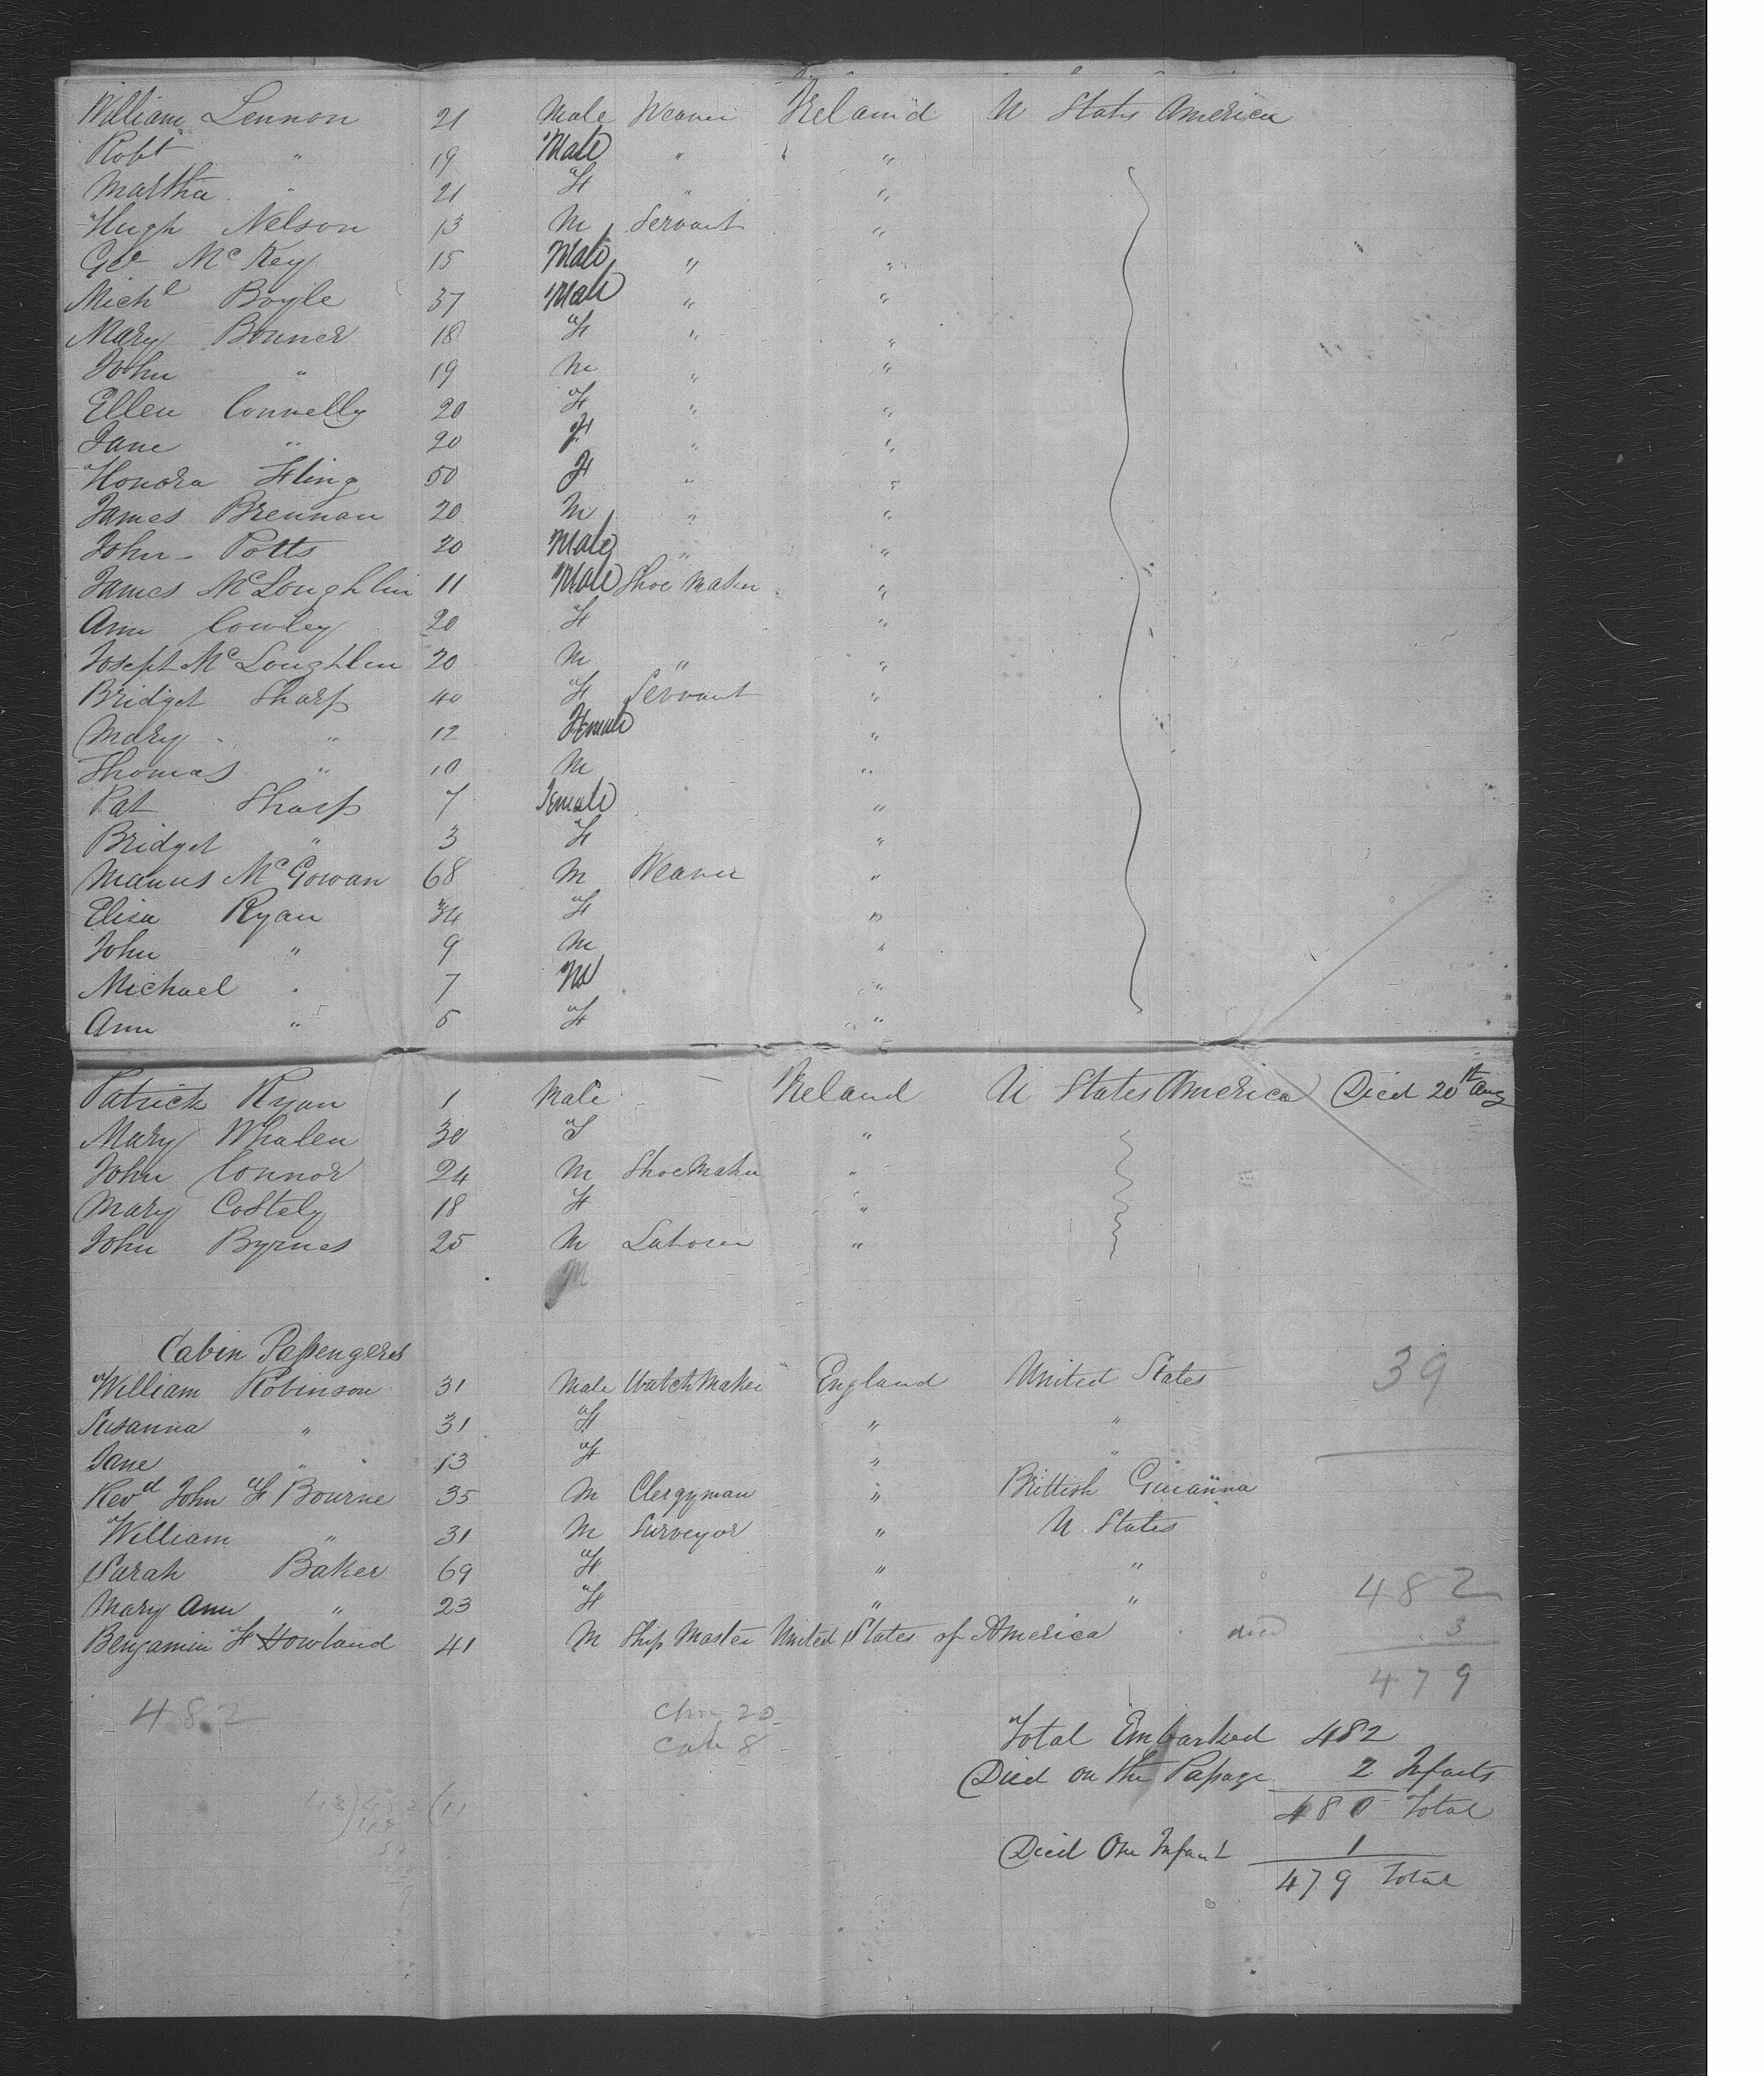 William Lennon 21 Male Weaver Ireland U States America
Robt " 19 Male " "
Martha " 21 F " "
Hugh Nelson 13 M Servant "
Geo McKey 15 Male " "
Michl Boyle 37 Male " "
Mary Bonner 18 F " "
John " 19 M " "
Ellen Connelly 20 F " "
Jane " 20 F " "
Honora Fling 50 F " "
James Brennan 20 M " "
John Potts 20 Male " "
James McLoughlin 11 Male Shoe Maker "
Ann Cowley 20 F "
Joseph McLoughlin 20 M " "
Bridget Sharp 40 F Servant "
Mary " 12 Female "
Thomas " 10 M "
Pat Sharp 7 Female "
Bridget " 3 F "
Manus McGowan 68 M Weaver "
Elisa Ryan 34 F "
John " 9 M "
Michael " 7 M "
Ann " 5 F "
Patrick Ryan 1 Male Ireland U States America Died 20th Aug
Mary Whalen 30 F "
John Connor 24 M Shoe Maker "
Mary Costely 18 F "
John Byrnes 25 M Laborer "
M
Cabin Passengers
39
William Robinson 31 Male Watch Maker England United States
Susanna " 31 F " "
Jane " 13 F " "
Revd John F Bourne 35 M Clergyman " Brittish Guianna
William " 31 M Surveyor " U. States
Sarah Baker 69 F " "
482
Mary Ann " 23 F " "
Benjamin F Howland 41 M Ship Master United States of America
died 3
479
482
20
Cab 8
Total Embarked 482
Died on the Passage 2 Infants
480 Total
Died One Infant 1
479 Total